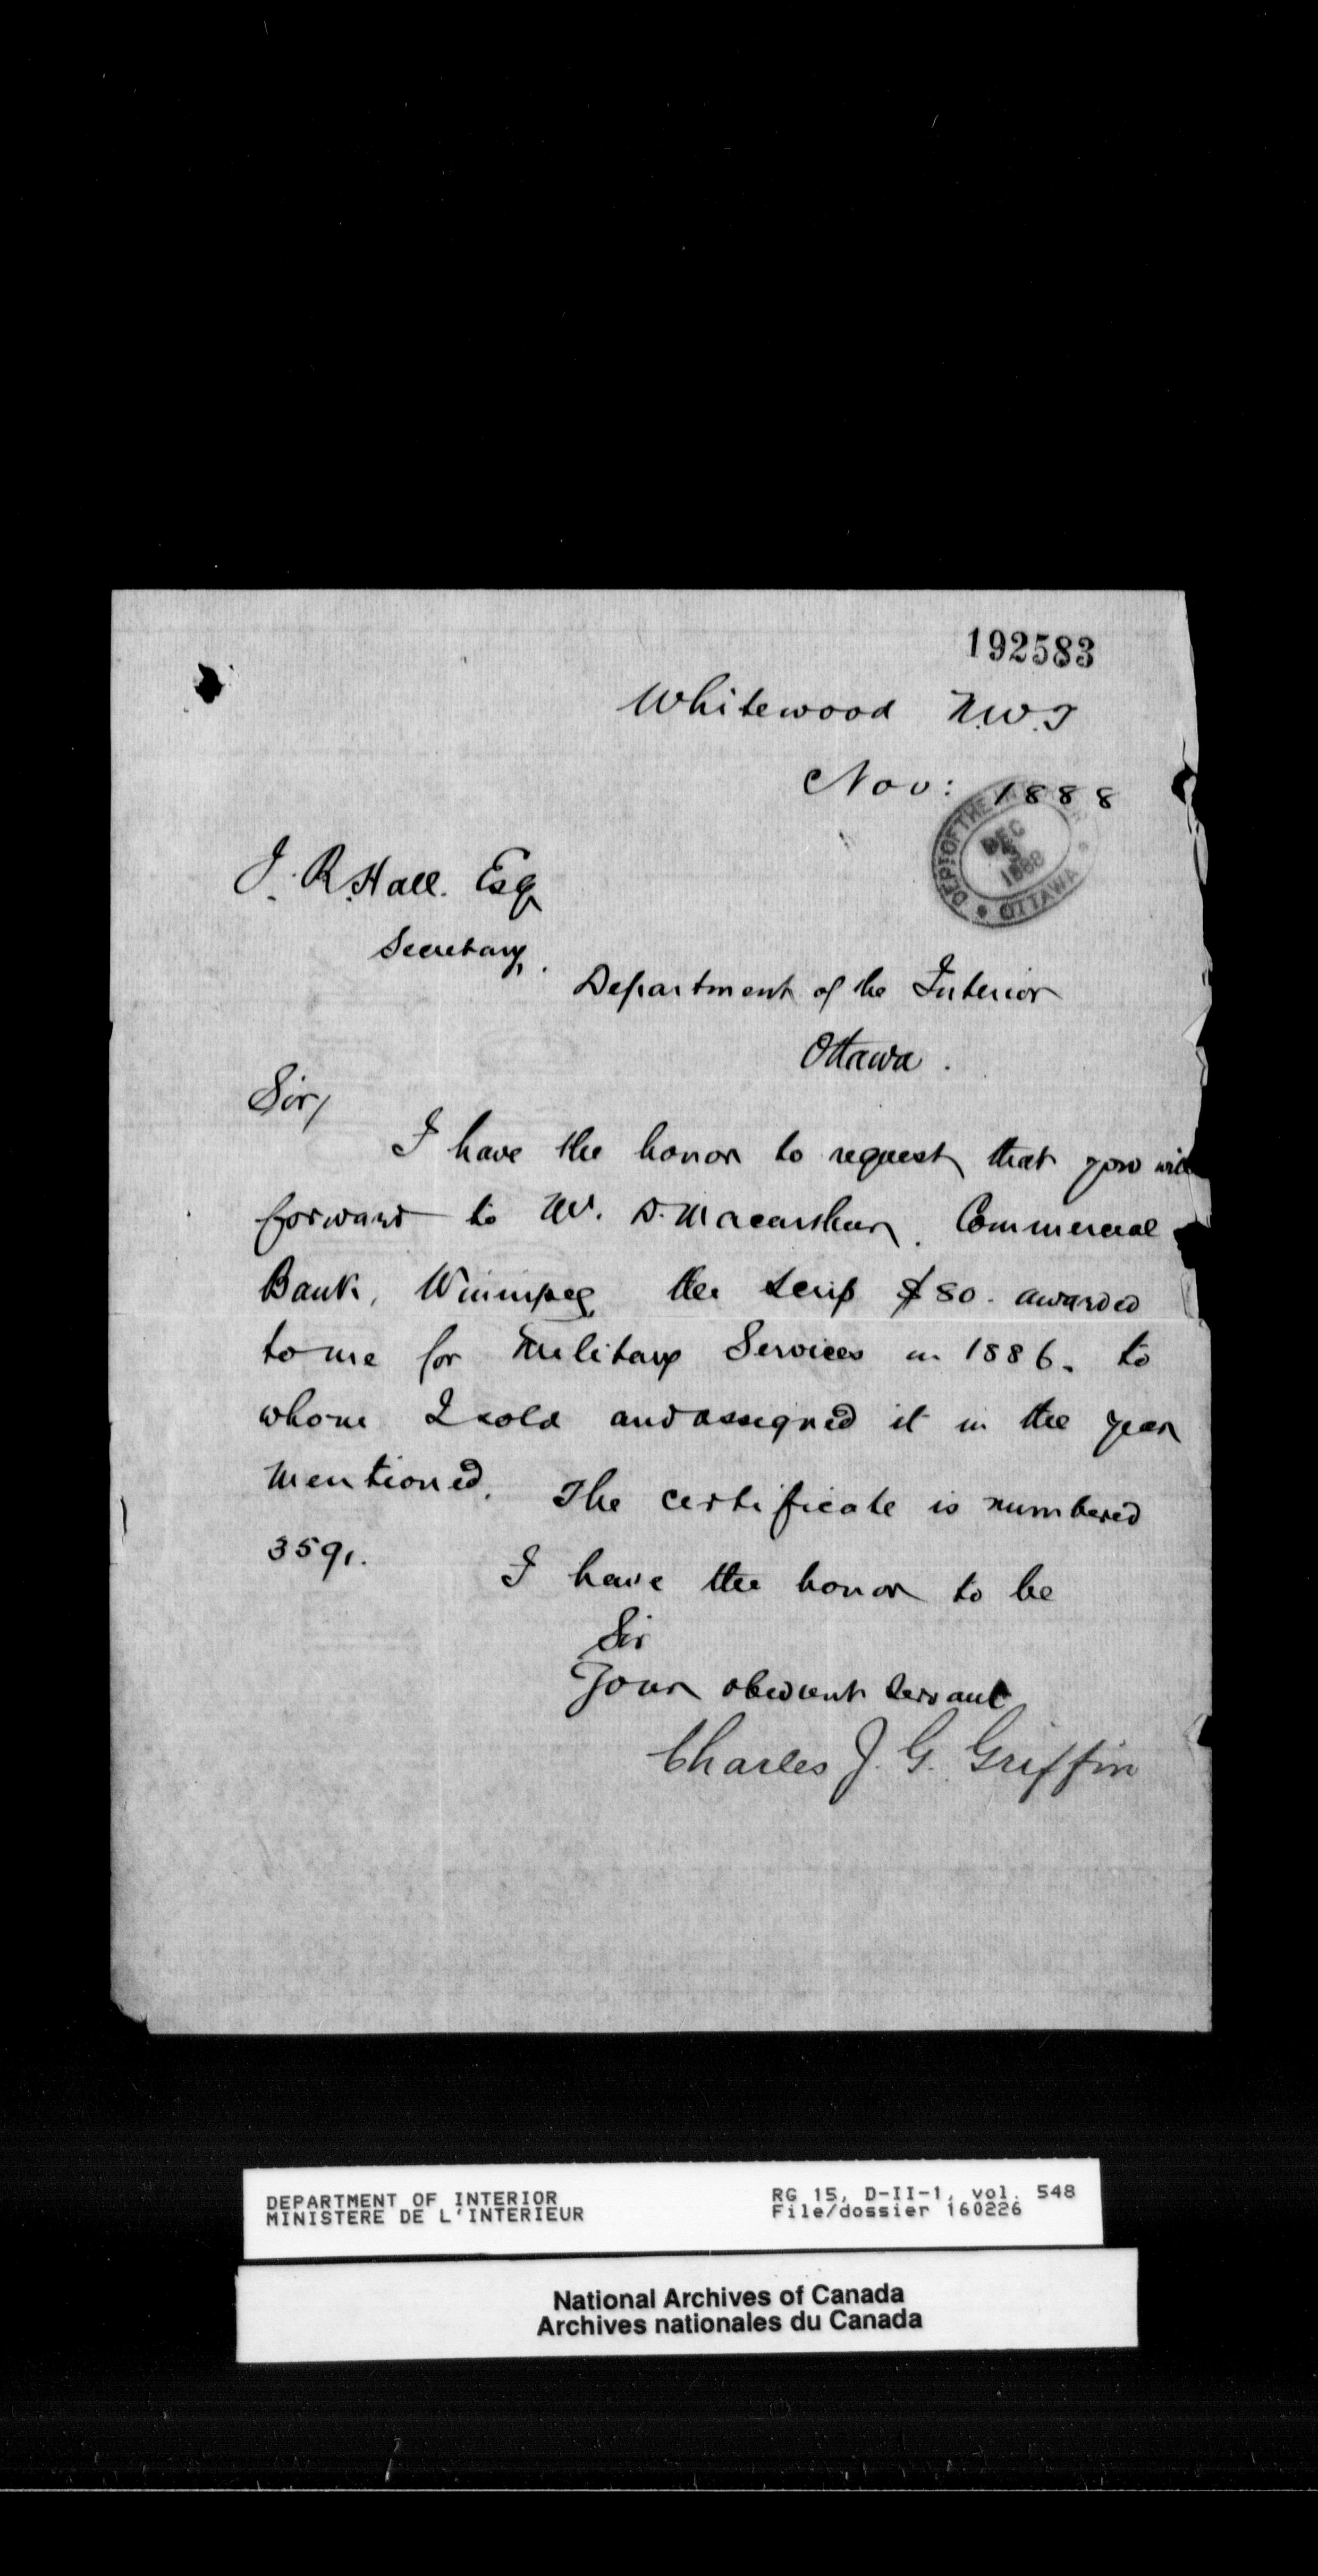 192583
Whitewood N.W.T
Nov: 1888
DEPT OF THE INTERIOR
DEC 3 1888
OTTAWA
J. R. Hall. Esq
Secretary.
Department of the Interior
Ottawa.
Sir/
I have the honor to request that you will
forward to W. D. Macarthur. Commercial
Bank, Winnipeg the scrip $80. awarded
to me for Military Services in 1886. to
whom I sold and assigned it in the year
mentioned. The certificate is numbered
3591.
I have the honor to be
Sir
Your obedient servant
Charles J. G. Griffin
DEPARTMENT OF INTERIOR RG 15, D-II-1, vol. 548
MINISTERE DE L'INTERIEUR File/dossier 160226
National Archives of Canada
Archives nationales du Canada